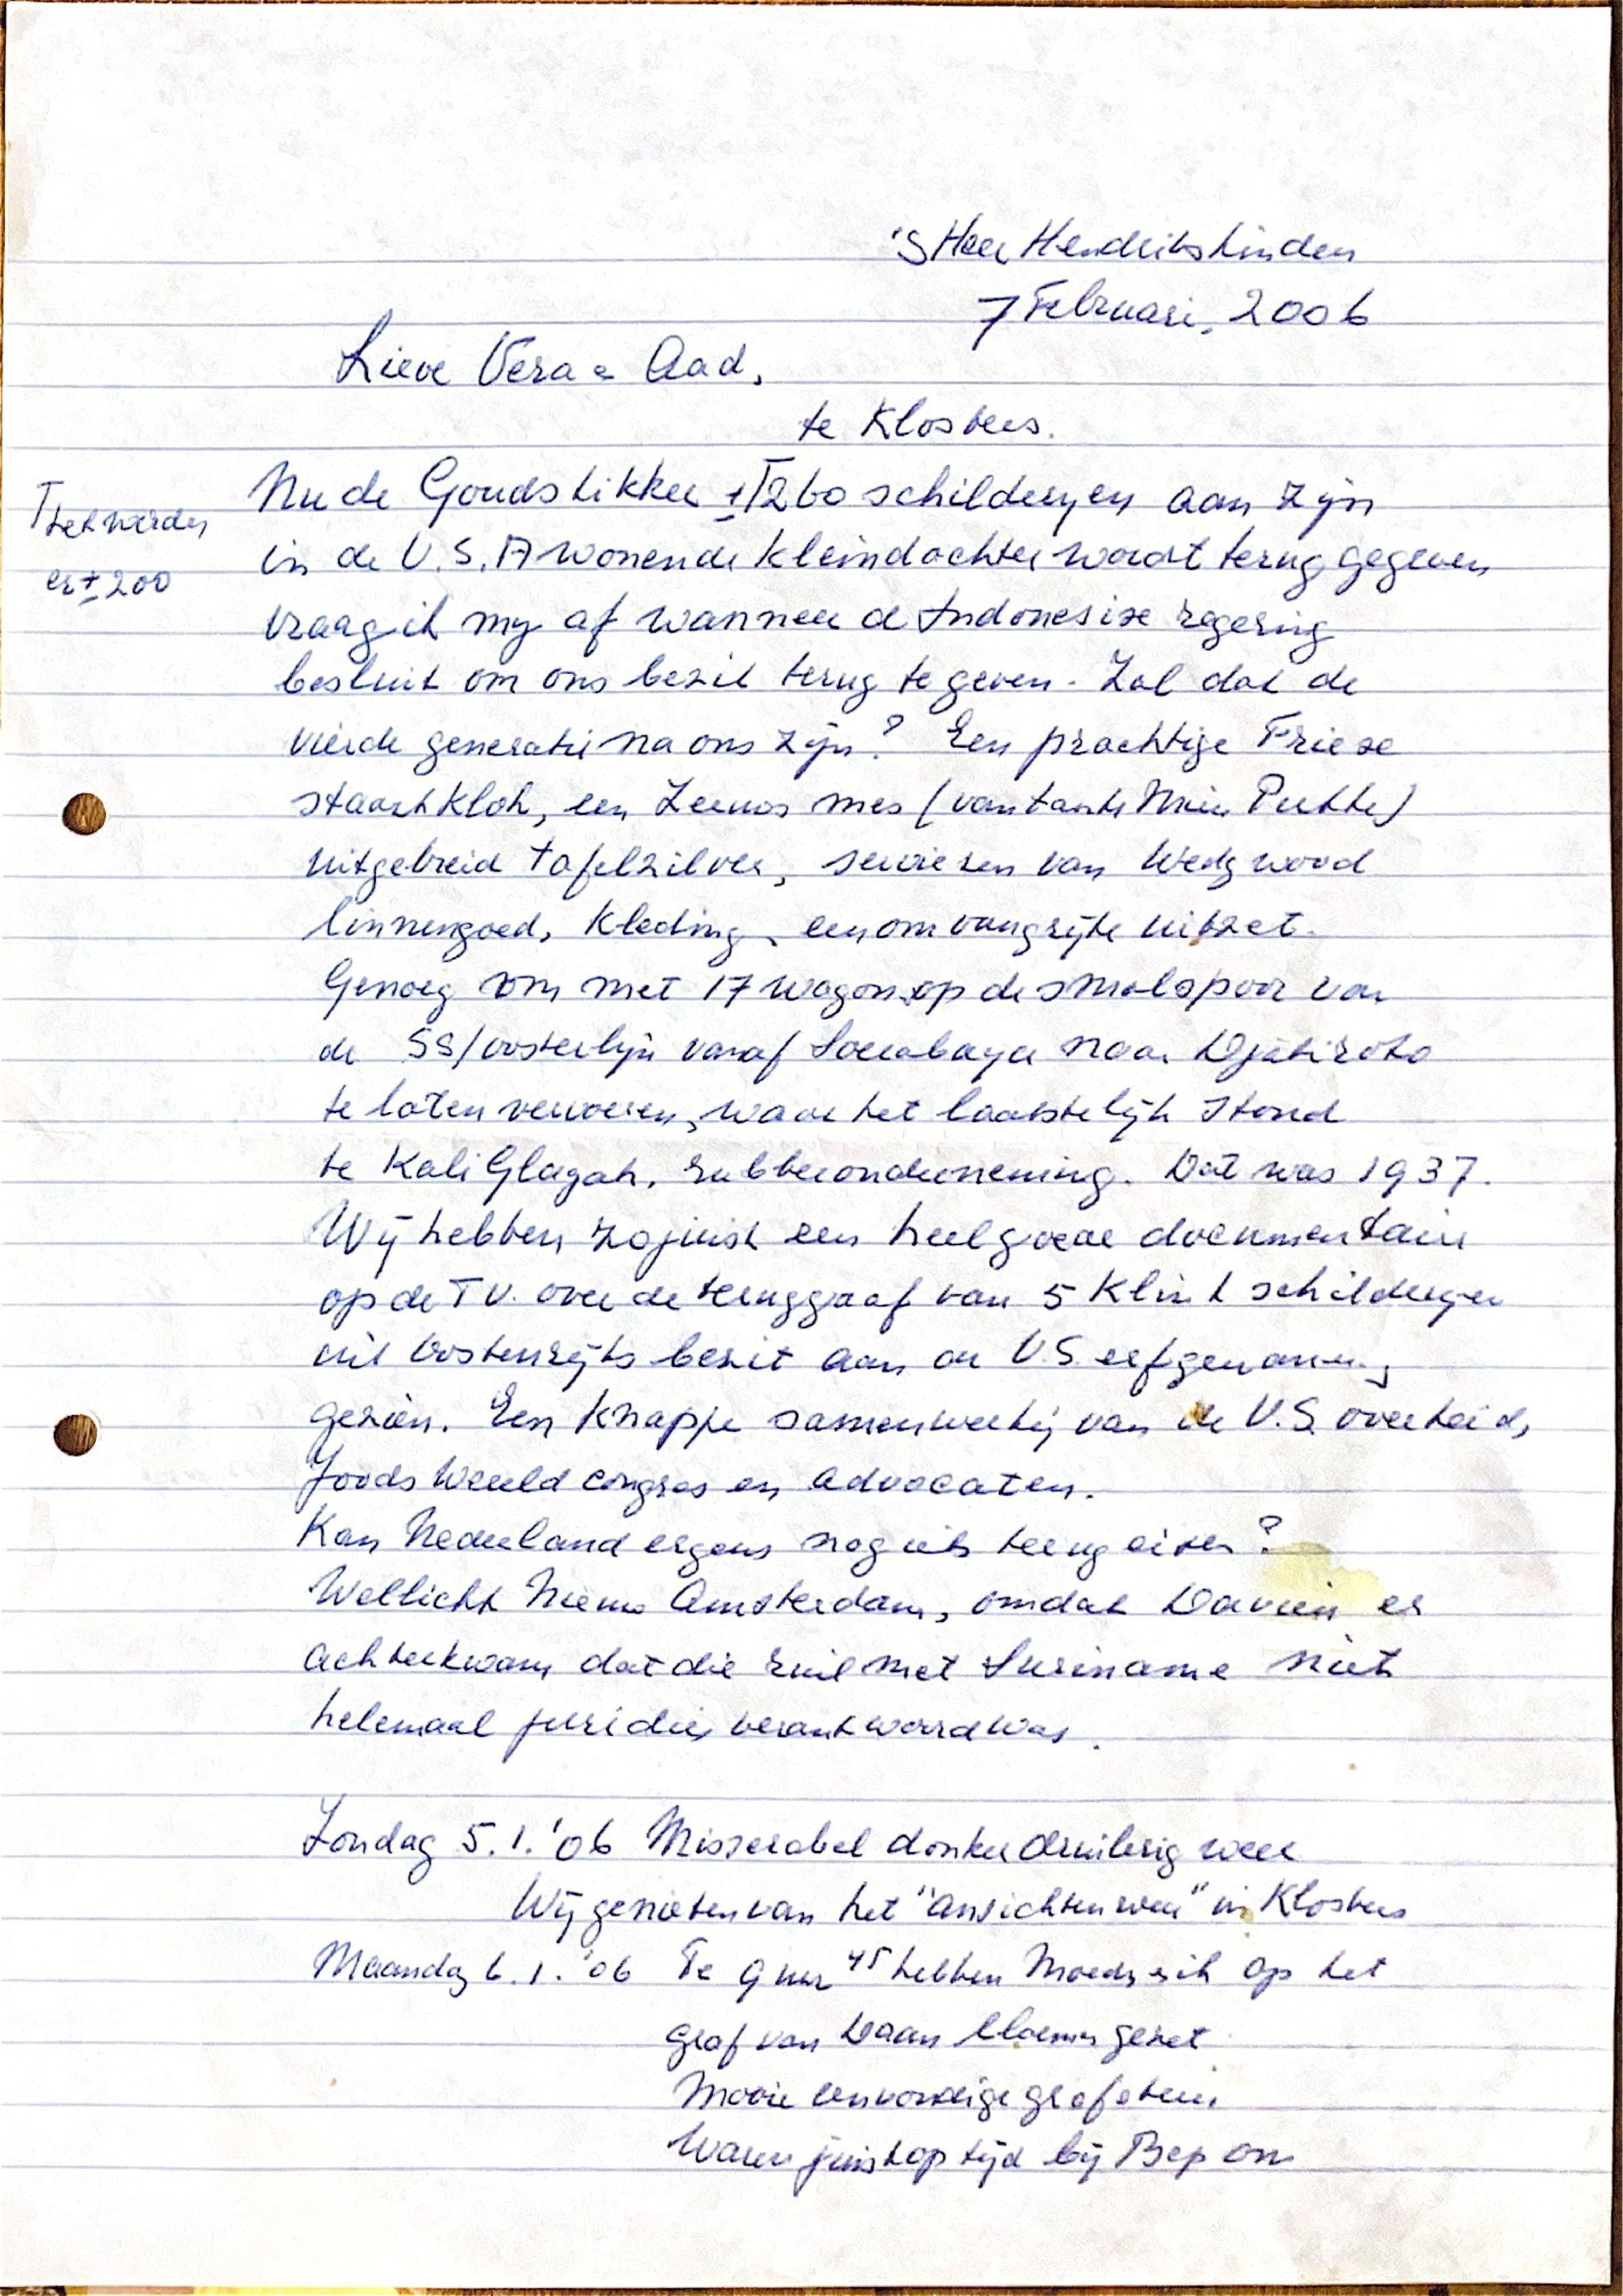 'S Heer Hendriks kinderen
7 Februari, 2006
Lieve Vera & Aad,
te Klosters.
Nu de Goudstikker ± 260 schilderijen aan zijn
het werden
er ± 200
in de U.S.A wonende kleindochter wordt terug gegeven
vraag ik mij af wanneer de Indonesise regering
besluit om ons bezit terug te geven. Zal dat de
vierde generatie na ons zijn? Een prachtige Friese
staartklok, een Zeeuws mes (van tante Mien Putte)
uitgebreid tafelzilver, serviezen van Wedgwood
linnengoed, kleding, een omvangrijke uitzet.
Genoeg om met 17 wagons op de smalspoor van
de SS/oosterlijn vanaf Soerabaya naar Djatiroto
te laten vervoeren, waar het laatstelijk stond
te Kali Glagah, rubberonderneming. Dat was 1937.
Wij hebben zojuist een heel goede documentaire
op de TV. over de teruggaaf van 5 Klimt schilderijen
uit Oostenrijks bezit aan de U.S. erfgenamen
gezien. Een knappe samenwerking van de U.S. overheid,
Joods Wereld congres en advocaten.
Kan Nederland ergens nog iets terug eisen?
Wellicht Nieuw Amsterdam, omdat er
achterkwam dat die ruil met Suriname niet
helemaal juridies verantwoord was.
Zondag 5.1.'06 Misserabel donker druilerig weer
Wij genoten van het "ansichten weer" in Klosters
Maandag 6.1.'06 Te 9 uur 45 hebben Moeder & ik op het
graf van Daan bloemen gezet
Mooie eenvoudige grafsteen.
Waren juist op tijd bij Bep om